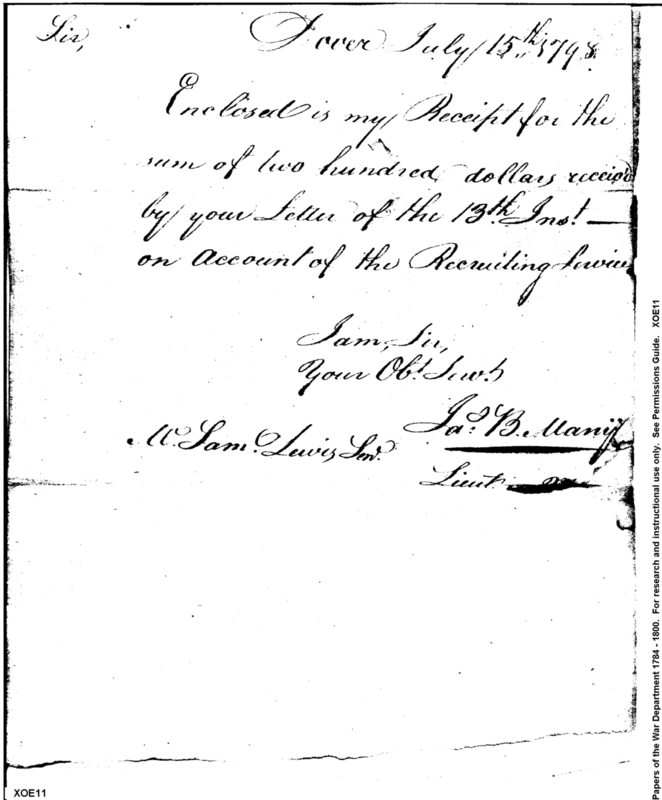 Sir, Dover July 15th 1798.
Enclosed is my Receipt for the
sum of two hundred dollars receivd
by your Letter of the 13th Inst —
on Account of the Recruiting Service
I am, Sir,
Your Obt Servt
Jas B. Many
Mr Saml Lewis Senr.
Lieut
XOE11
Papers of the War Department 1784 - 1800. For research and instructional use only. See Permissions Guide. XOE11